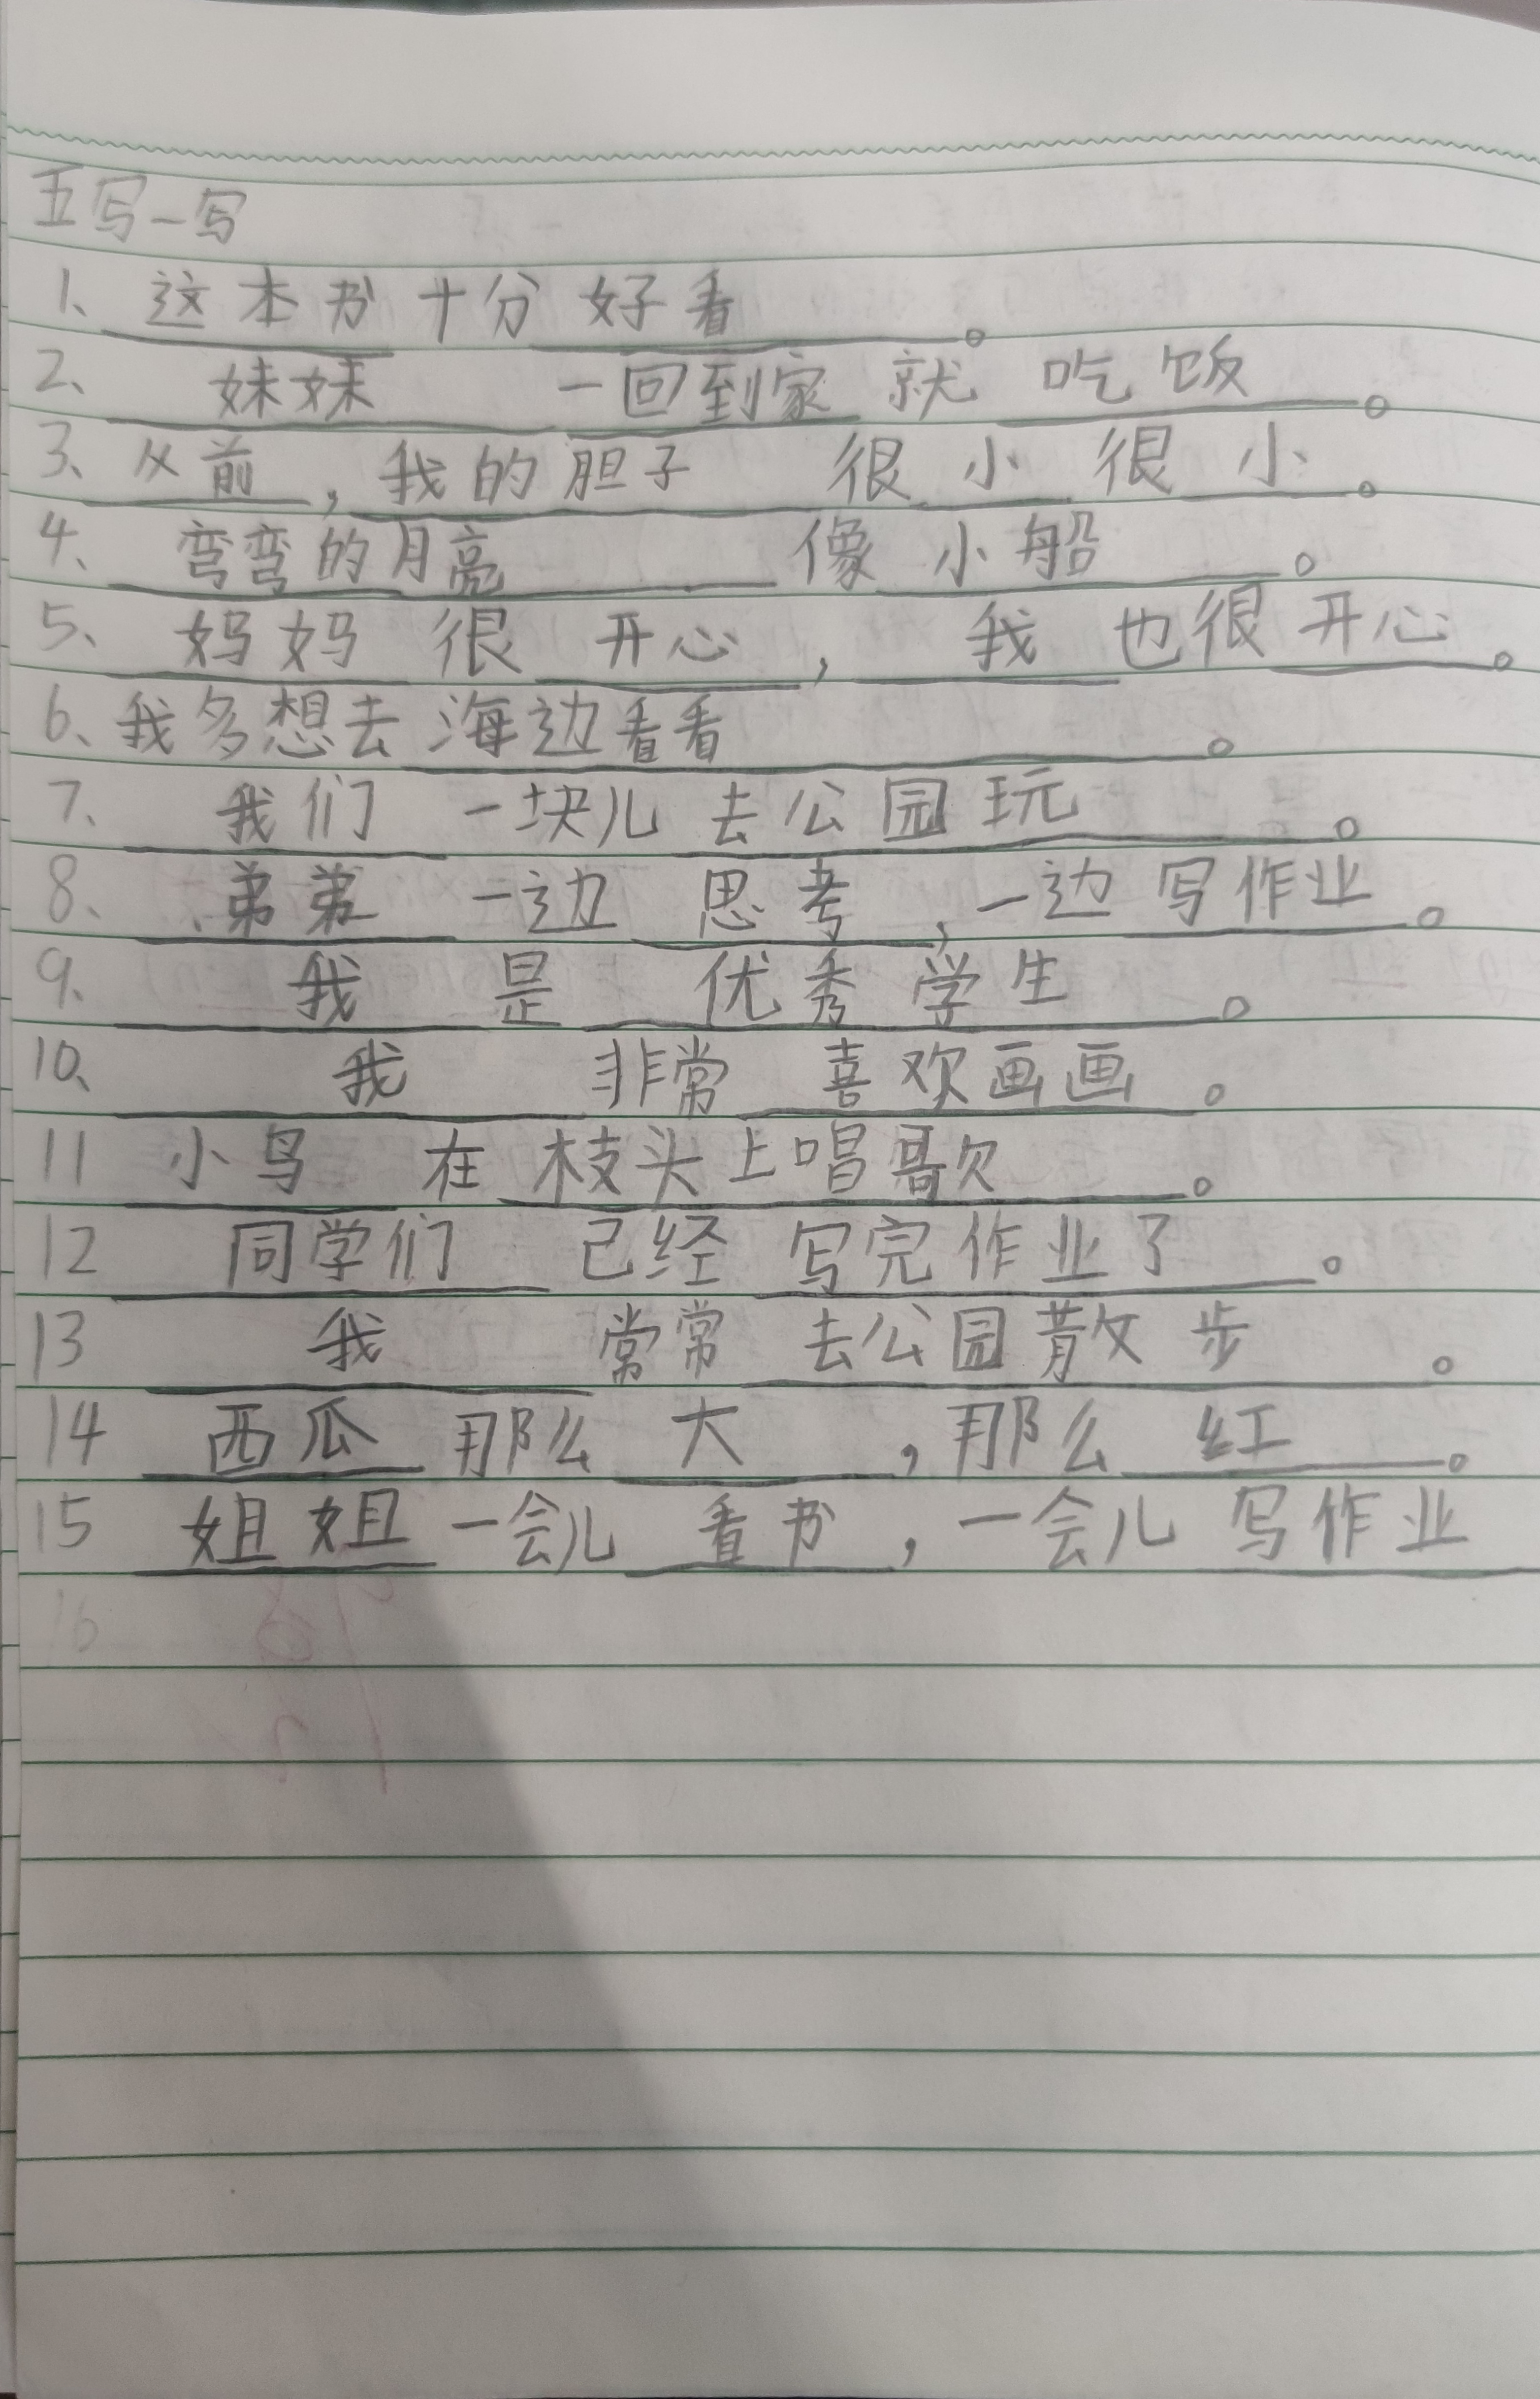 五写一写
1、这本书十分好看。
2、妹妹一回到家就吃饭。
3、从前,我的胆子很小很小。
4、弯弯的月亮像小船。
5、妈妈很开心,我也很开心。
6、我多想去海边看看。
7、我们一块儿去公园玩。
8、弟弟一边思考,一边写作业。
9、我是优秀学生。
10、我非常喜欢画画。
11 小鸟在枝头上唱歌。
12 同学们已经写完作业了。
13 我常常去公园散步。
14 西瓜那么大,那么红。
15 姐姐一会儿看书,一会儿写作业
16